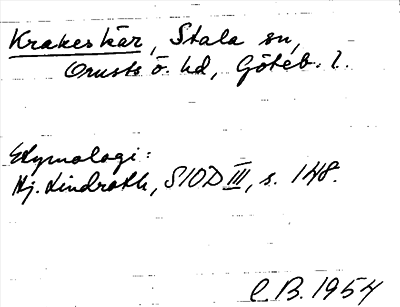 Krakeskär, Stala sn,
Orusts ö. hd, Göteb. l.
Etymologi:
Hj. Lindroth, SIOD III, s. 148.
C.B. 1954